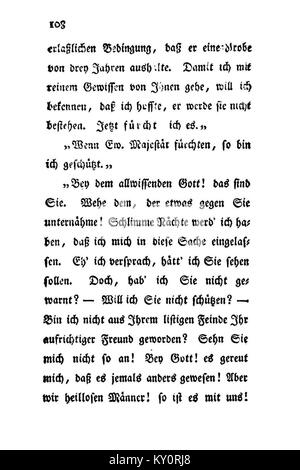 108
erlaßlichen Bedingung, daß er eine Probe
von drey Jahren aushalte. Damit ich mit
reinem Gewissen von Ihnen gehe, will ich
bekennen, daß ich hoffte, er werde sie nicht
bestehen. Jetzt fürcht ich es.„
„Wenn Ew. Majestät fürchten, so bin
ich geschützt.„
„Bey dem allwissenden Gott! das sind
Sie. Wehe dem, der etwas gegen Sie
unternähme! Schlimme Nächte werd' ich ha-
ben, daß ich mich in diese Sache eingelas-
sen. Eh' ich versprach, hätt' ich Sie sehen
sollen. Doch, hab' ich Sie nicht ge-
warnt? — Will ich Sie nicht schützen? —
Bin ich nicht aus Ihrem listigen Feinde Ihr
aufrichtiger Freund geworden? Sehn Sie
mich nicht so an! Bey Gott! es gereut
mich, daß es jemals anders gewesen! Aber
wir heillosen Männer! so ist es mit uns!
alamy
Image ID: KY0RJ8
www.alamy.com